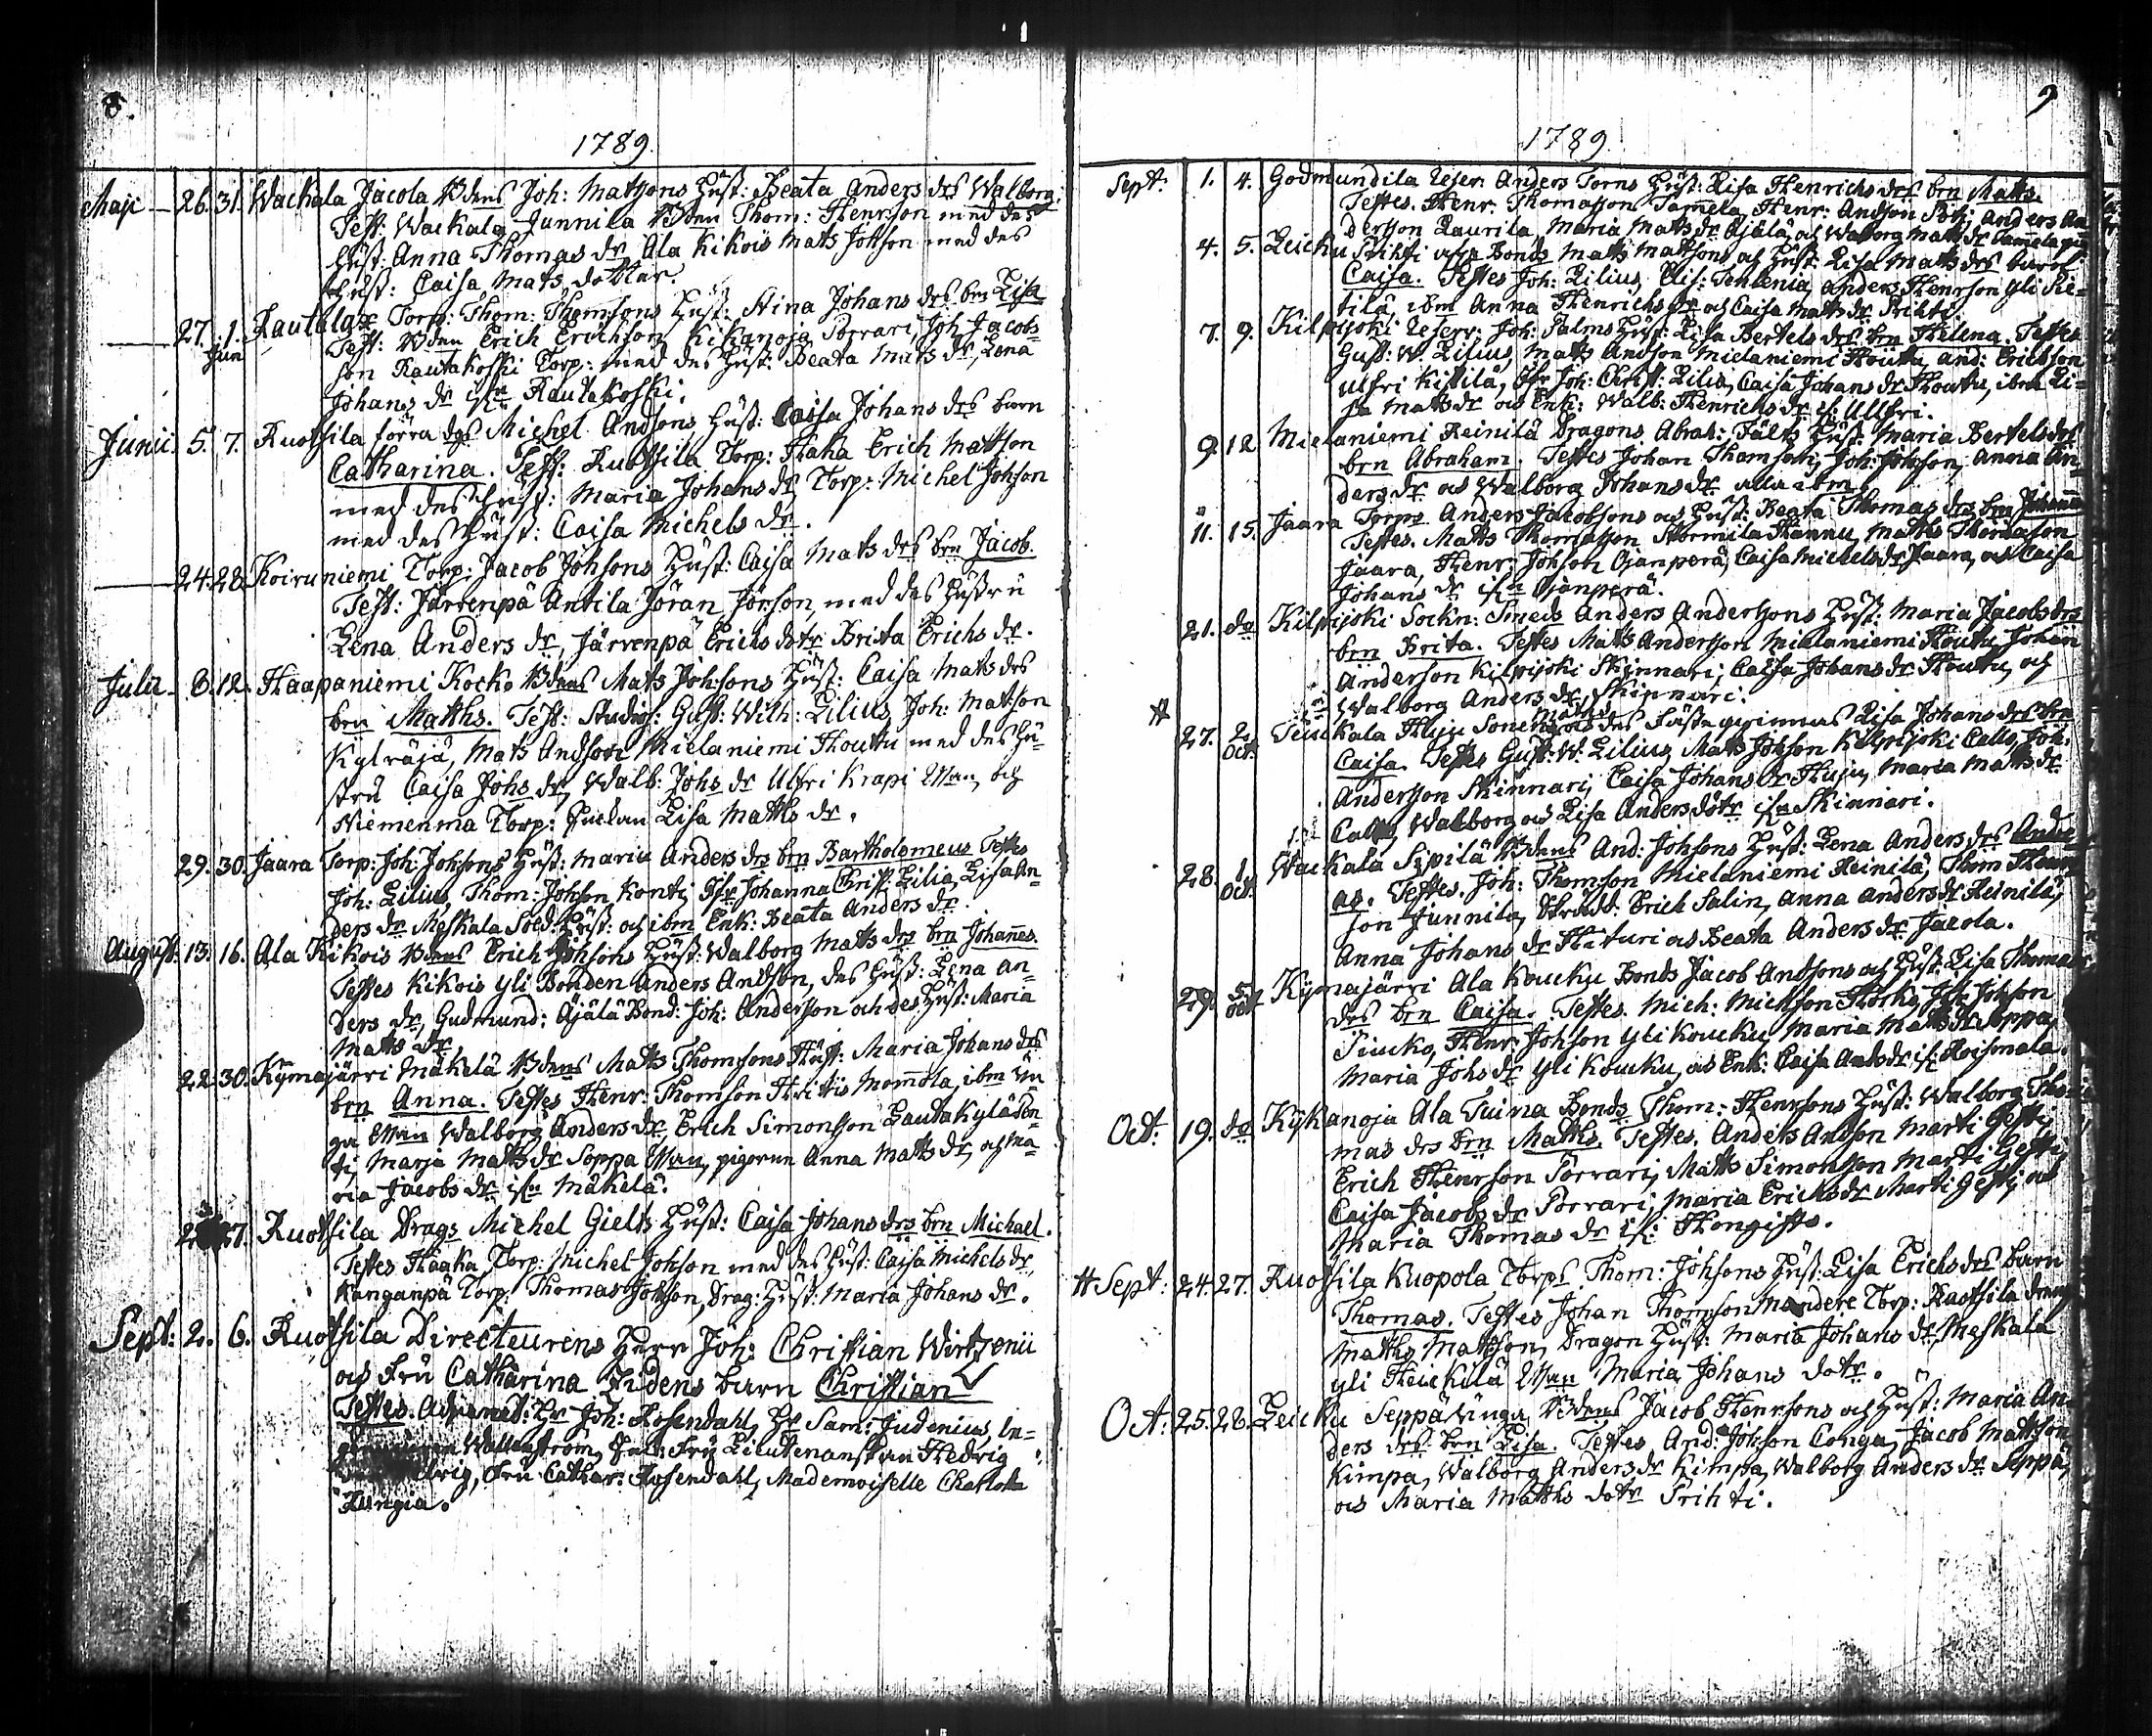 8.
1789.
Maji 26. 31. Wackala Jacola Bdens Joh: Matsons Hust: Beata Anders drs Walborg.
Test: Wackala Junnila Bden Thom: Henrson med des
Hust: Anna Thomas dr, Ala Kikois Mats Johson med des
Hust: Caisa Mats dotter.
27. 1. Jun Rautala Torp: Thom: Thomsons Hust: Stina Johans drs brn Lisa
Test: Bden Erich Erichson Kikanoja Porrari, Joh Jacobs-
son Rautakoski Torp: med des Hust: Beata Mats dr, Lena
Johans dr Rautakoski.
Junii. 5. 7. Ruotsila förra dgs Michel Andsons Hust: Caisa Johans drs barn
Catharina. Test: Ruotsila Torp: Haka Erich Matson
med des Hust: Maria Johans dr Torp: Michel Johson
med des Hust: Caisa Michels dr.
24. 28. Koiruniemi Torp: Jacob Johsons Hust: Caisa Mats drs brn Jacob.
Test: Järvenpä Antila Jöran Jörson, med des Hustru
Lena Anders dr, Järvenpä Erichs dotr Brita Erichs dr.
Julii 8. 12. Haapaniemi Kocko Bdens Mats Johsons Hust: Caisa Mats drs
brn Matths. Test: Studios: Gust: Wilh: Lilius, Joh: Matson
Kylräjä, Mats Andson Mielaniemi Houtu med des Hu-
stru Caisa Johs dr, Walb: Johs dr Ulfri Krapi Man, och
Niemenma Torp: Enckan Lisa Matths dr.
29. 30. Jaara Torp: Joh: Johsons Hust: Maria Anders drs brn Bartholomeus Testes
Joh: Lilius, Thom: Johson Konti, Jfr Johanna Christ: Lilia, Lisa An-
ders dr Meskala Sold: Hust: och ibm Enk: Beata Anders dr.
August: 13. 16. Ala Kikois Bdens Erich Johsons Hust: Walborg Mats drs brn Johannes.
Testes Kikois Yli Bonden Anders Andson, des Hust: Lena An-
ders dr, Gudmund: Äjälä Bond: Joh: Anderson och des Hust: Maria
Mats dr.
22. 30. Kymajärvi Mäkelä Bdens Matts Thomsons Hust: Maria Johans drs
brn Anna. Testes Henr: Thomson Hritiis Mommola, ibm
Walborg Anders dr, Erich Simonson Lautakylä
ti, Marja Matts dr Soppa Man, pigorna Anna Matts dr, och Ma-
ria Jacobs dr Mäkelä.
27. Ruotsila Drags Michel Gielts Hust: Caisa Johans drs brn Michael.
Testes Haaka Torp: Michel Johson med des Hust: Caisa Michels dr,
Kanganpä Torp: Thomas Johson, Drag: Hust: Maria Johans dr.
Sept: 2. 6. Ruotsila Directeurens Herr Joh: Christian Wirtzenii
och Fru Catharina Lidens barn Christian
Testes. Adjunct: Hr Joh: Rosendahl, Hr Sam: Judenius, In-
Wallenström, Fru Lieutenanskan Hedvig
Fru Cathar: Rosendahl, Mademoiselle Charlotta
Rungia.
9
1789.
Sept: 1. 4. Godmundila Reser: Anders Torns Hust: Lisa Henrichs drs brn Matts.
Testes. Henr: Thomasson Tamela, Henr: Andson Anders An-
derson Laurila, Maria Mats dr Äjälä, och Walborg Matts dr Tammela
4. 5. Leicku Prihti Bonds Matts Mattsons och Hust: Lisa Matts drs barn
Caisa. Testes Joh: Lilius, Anders Henrson Yli Ke-
tilä, ibm Anna Henrichs dr och Caisa Matts dr Prihti.
7. 9. Kilpijoki Reserv: Joh: Palms Hust: Lisa Bertels drs brn Helena. Testes
Gust: W. Lilius, Matts Andson Mielaniemi Houtu, And: Ericson
Ulfri Kistilä, Jfr Joh: Christ: Lilia, Caisa Johans dr Houtu, ibm Li-
sa Matts dr och Enk: Walb: Henrichs dr Ullfri.
9. 12 Mielaniemi Reinilä Dragons Abrah: Fälts Hust: Maria Bertels drs
brn Abraham. Testes Johan Thomson, Joh: Johson, Anna An-
ders dr och Walborg Johans dr alla ibm.
11. 15. Jaara Torps Anders Jacobsons och Hust: Beata Thomas drs brn Johanna
Testes. Matts Thomasson Stormila Hannu, Matts Thomason
Jaara, Henr: Johson Ojanperä, Caisa Michels dr Jaara, och Caisa
Johans dr Ojanperä.
21. do Kilpijoki Sockn: Smeds Anders Andersons Hust: Maria Jacobs drs
brn Brita. Testes Mats Andersson Mielaniemi Houtu, Johan
Anderson Kilpijoki Skinnari, Caisa Johans dr Houtu, och
Walborg Anders dr Skinnari.
# 27. 2. Oct. Huju Sonens Matts och des Fästeqvinnas Lisa Johans drs brn
Caisa. Testes Gust: W. Lilius, Mats Johson Kilpijoki Calls, Joh:
Anderson Skinnari, Caisa Johans dr Huju, Maria Matts dr
Calls, Walborg och Lisa Anders dotr Skinnari.
28. 1. Oct. Wackala Sipilä Bdens And: Johsons Hust: Lena Anders drs Andre-
as. Testes. Joh: Thomson Mielaniemi Reinilä, Thom Thom-
son Junnila, Skrädd: Erich Salin, Anna Anders dr Reinilä,
Anna Johans dr Hituri och Beata Anders dr Jacola.
29. 5. Oct Kymajärvi Ala Koucku Bonds Jacob Andsons och Hust: Lisa Thomas
drs brn Caisa. Testes. Mich: Michson Horko, Joh: Johson
Piucko, Henr: Johson Yli Koucku, Maria Matts dr Soppa,
Maria Johs dr Yli Koucku, och Enk: Caisa Ands dr Roismala.
Oct: 19. do Kykanoja Ala Tuina Bonds Thom: Henrsons Hust: Walborg Tho-
mas drs brn Matths. Testes. Anders Andson Marti Gesti,
Erich Henrson Porrari, Matts Simonson Marti Gesti,
Caisa Jacobs dr Porrari, Maria Erichs dr Marti Gesti, och
Maria Thomas dr Hongisto.
# Sept: 24. 27. Ruotsila Kuopola Torps Thom: Johsons Hust: Lisa Erichs drs barn
Thomas. Testes Johan Thomson Mandere Torp: Ruotsila dreng
Matths Matsson, Dragon Hust: Maria Johans dr, Meskala
Yli Heickilä Man Maria Johans dotr.
Oct: 25. 28. Leicku Seppä Bdens Jacob Henrsons och Hust: Maria An-
ders drs brn Lisa. Testes And: Johson Conga, Jacob Mattson
Kimpa, Walborg Anders dr Kimpa, Walborg Anders dr Seppä,
och Maria Matths dotr Prihti.